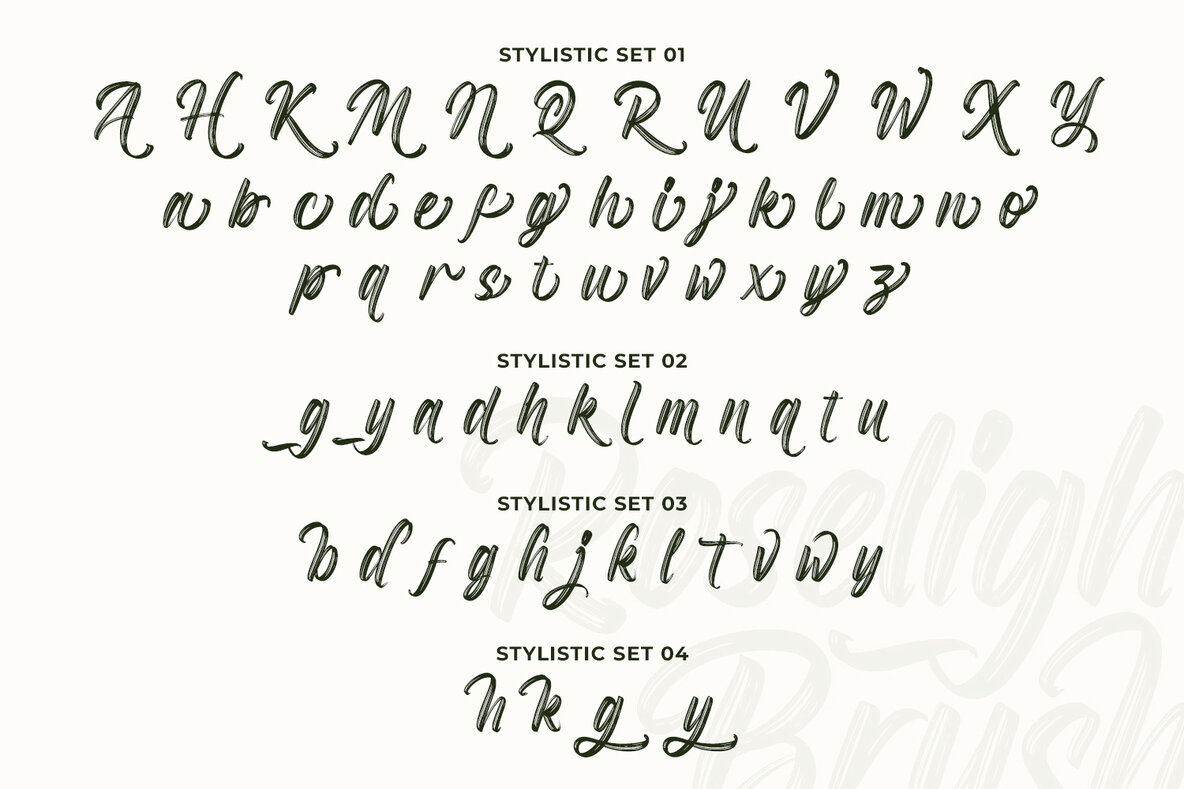 STYLISTIC SET 01
A H K M N Q R U V W X Y
a b c d e f g h i j k l m n o
p q r s t u v w x y z
STYLISTIC SET 02
g y a d h k l m n q t u
STYLISTIC SET 03
b d f g h j k l t v w y
STYLISTIC SET 04
h k g y
Roseligh
Brush